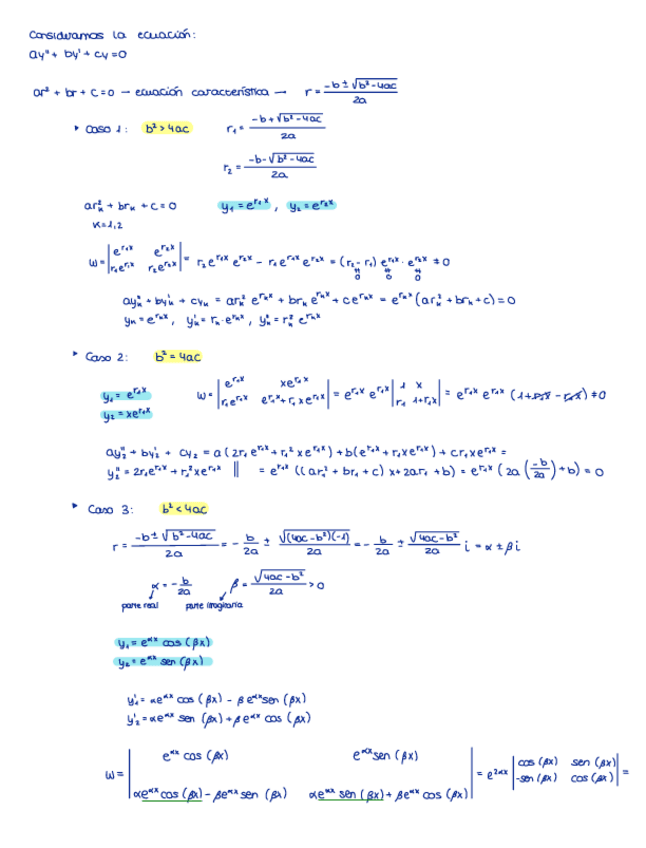 Consideramos la ecuación:
ay'' + by' + cy = 0
ar² + br + c = 0 → ecuación característica → r = (-b ± √(b² - 4ac)) / 2a
▸ Caso 1: b² > 4ac r₁ = (-b + √(b² - 4ac)) / 2a
r₂ = (-b - √(b² - 4ac)) / 2a
arₖ² + brₖ + c = 0 y₁ = e^(r₁x), y₂ = e^(r₂x)
k = 1,2
W = | e^(r₁x) e^(r₂x) ; r₁e^(r₁x) r₂e^(r₂x) | = r₂ e^(r₁x) e^(r₂x) - r₁ e^(r₁x) e^(r₂x) = (r₂ - r₁) e^(r₁x) · e^(r₂x) ≠ 0
≠ ≠ ≠
0 0 0
ayₖ'' + byₖ' + cyₖ = arₖ² e^(rₖx) + brₖ e^(rₖx) + ce^(rₖx) = e^(rₖx) (arₖ² + brₖ + c) = 0
yₖ = e^(rₖx), yₖ' = rₖ · e^(rₖx), yₖ'' = rₖ² e^(rₖx)
▸ Caso 2: b² = 4ac
y₁ = e^(r₁x) W = | e^(r₁x) xe^(r₁x) ; r₁e^(r₁x) e^(r₁x) + r₁xe^(r₁x) | = e^(r₁x) e^(r₁x) | 1 x ; r₁ 1+r₁x | = e^(r₁x) e^(r₁x) (1 + r₁x - r₁x) ≠ 0
y₂ = xe^(r₁x)
ay₂'' + by₂' + cy₂ = a(2r₁e^(r₁x) + r₁² xe^(r₁x)) + b(e^(r₁x) + r₁xe^(r₁x)) + cr₁xe^(r₁x) =
y₂'' = 2r₁e^(r₁x) + r₁²xe^(r₁x) || = e^(r₁x) ((ar₁² + br₁ + c) x + 2ar₁ + b) = e^(r₁x) (2a (-b/2a) + b) = 0
▸ Caso 3: b² < 4ac
r = (-b ± √(b² - 4ac)) / 2a = - b/2a ± √((4ac - b²)(-1)) / 2a = - b/2a ± √(4ac - b²) / 2a i = α ± βi
α = - b/2a β = √(4ac - b²) / 2a > 0
parte real parte imaginaria
y₁ = e^(αx) cos (βx)
y₂ = e^(αx) sen (βx)
y₁' = αe^(αx) cos (βx) - βe^(αx) sen (βx)
y₂' = αe^(αx) sen (βx) + βe^(αx) cos (βx)
W = | e^(αx) cos (βx) e^(αx) sen (βx) ; αe^(αx) cos (βx) - βe^(αx) sen (βx) αe^(αx) sen (βx) + βe^(αx) cos (βx) | = e^(2αx) | cos (βx) sen (βx) ; -sen (βx) cos (βx) | =